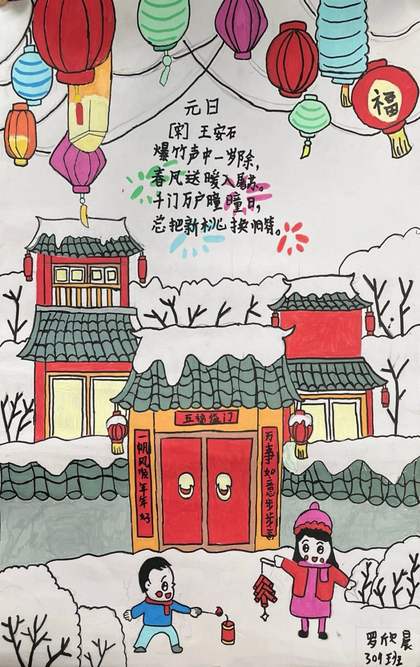 福
元日
[宋] 王安石
爆竹声中一岁除,
春风送暖入屠苏。
千门万户瞳瞳日,
总把新桃换旧符。
五福临门
一帆风顺年年好
万事如意步步高
罗欣晨
309班